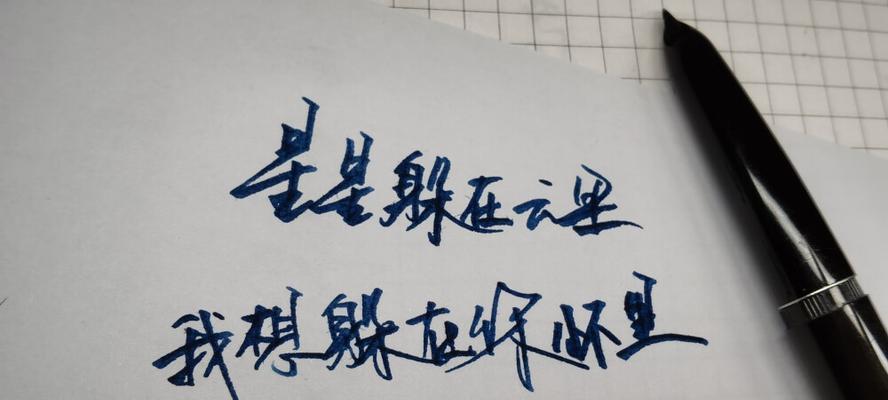 星星躲在云里
我想躲在你怀里